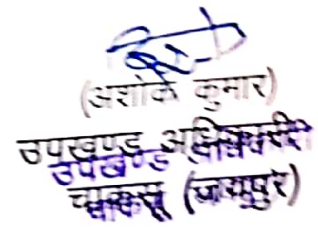 (अशोक कुमार)
उपखण्ड अधिकारी
उपखण्ड अधिकारी
चाकसू (जयपुर)